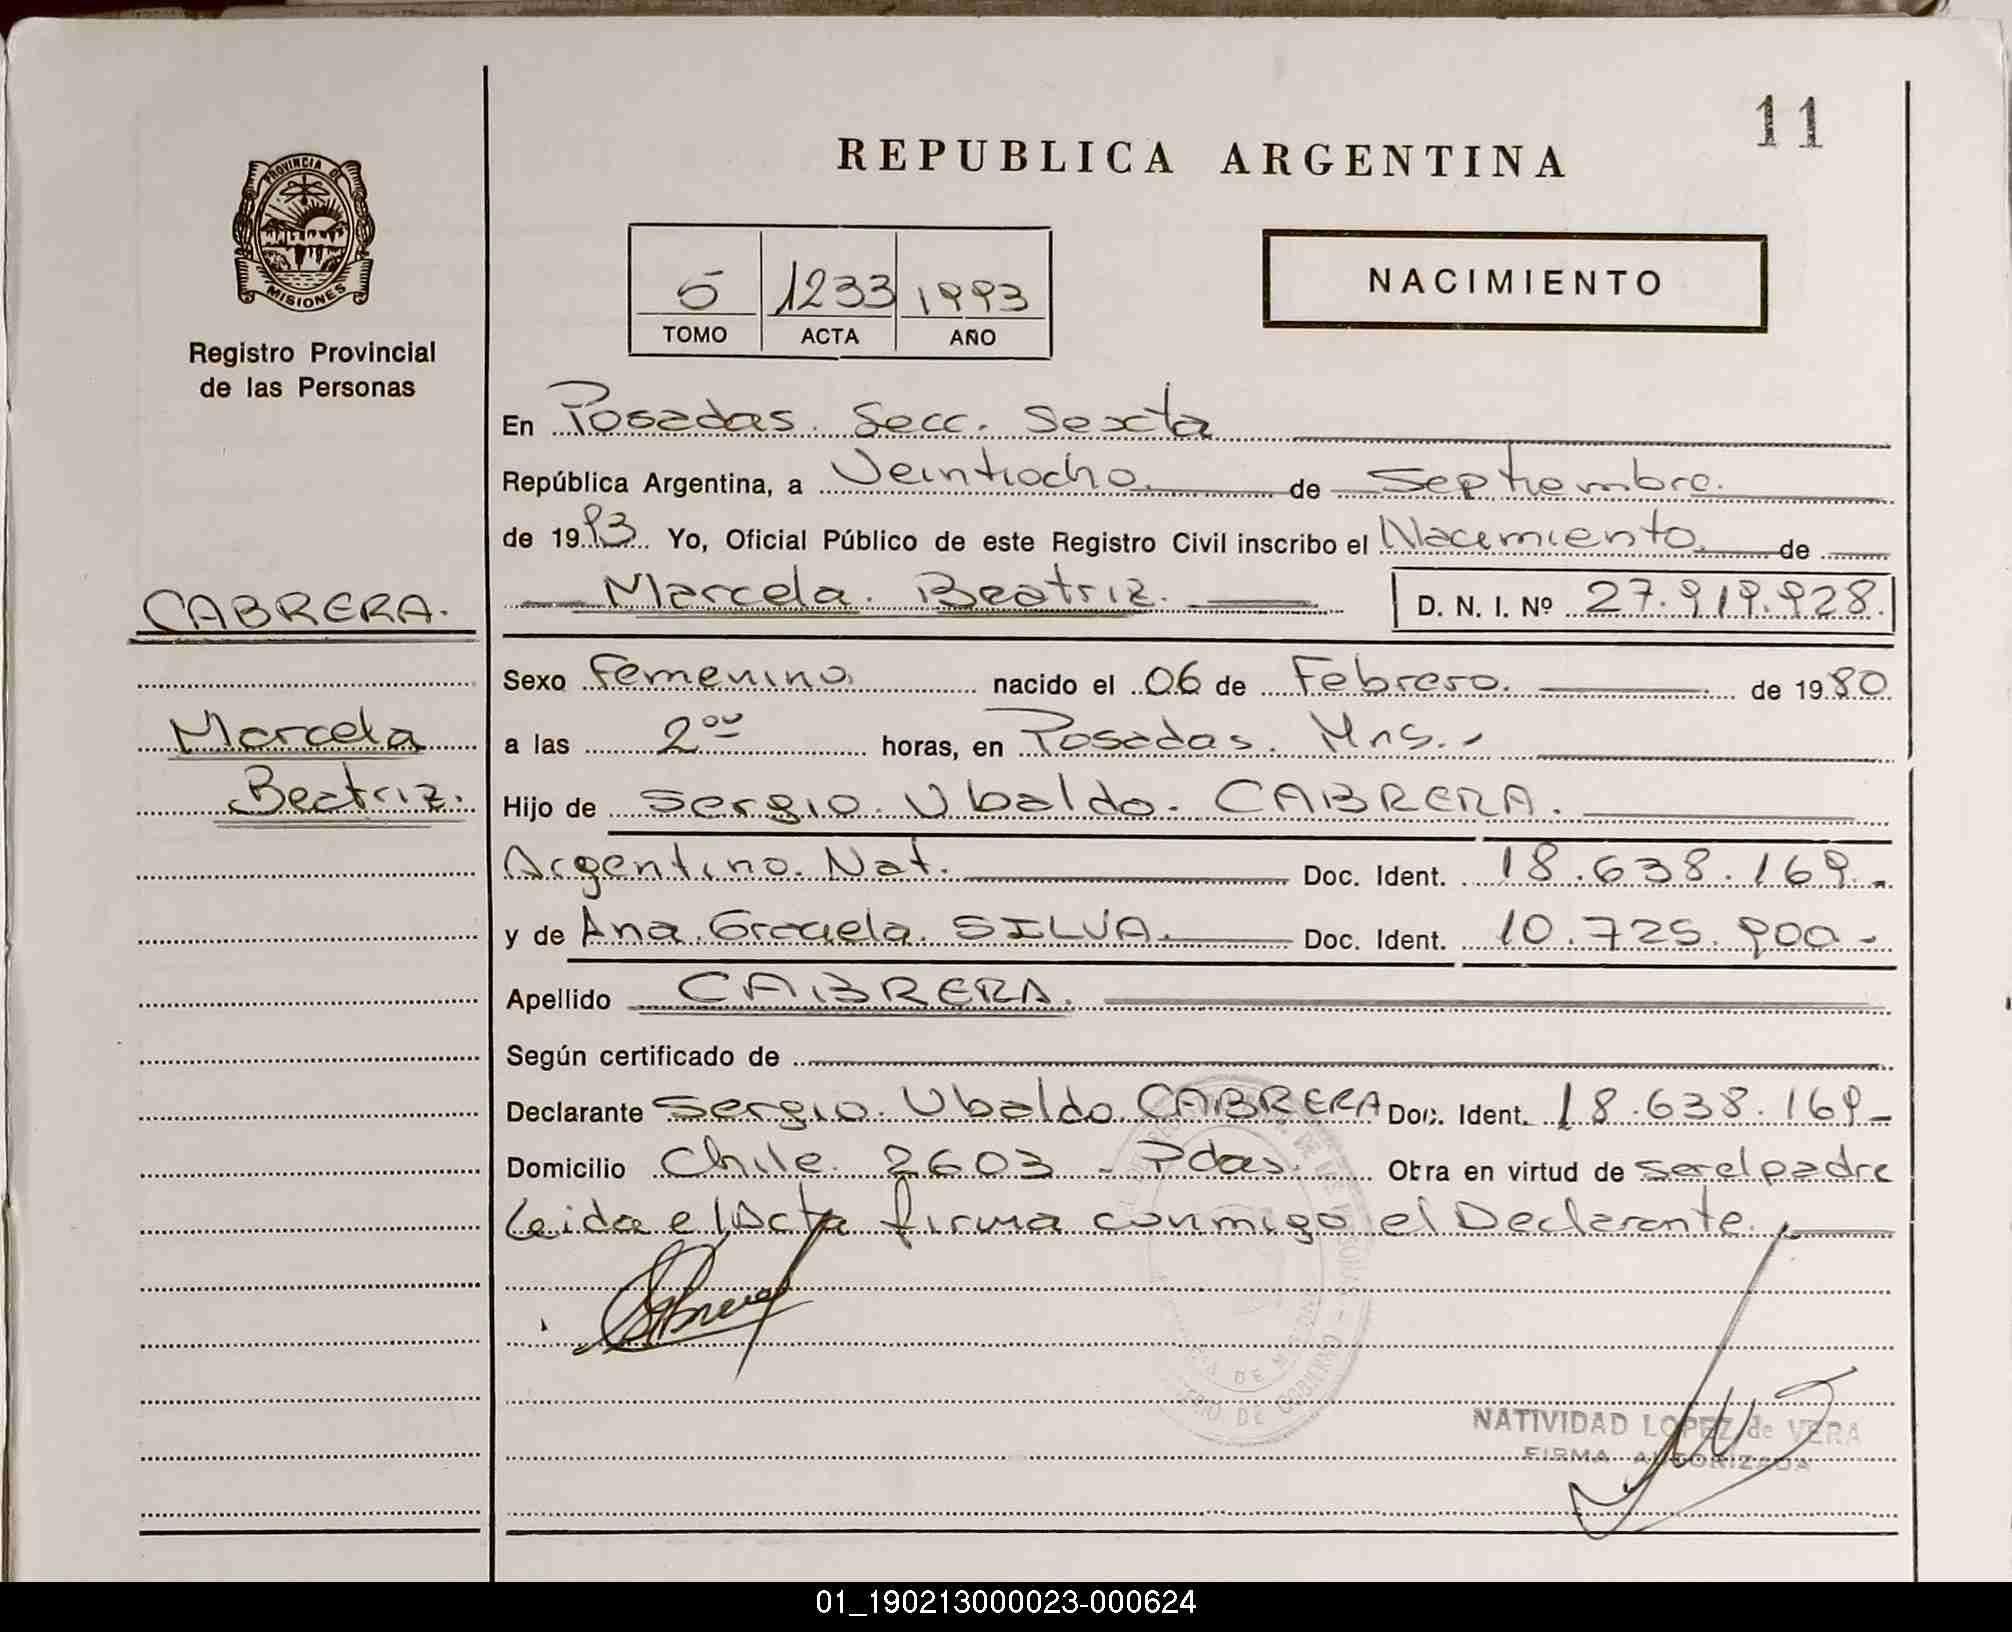 11
REPUBLICA ARGENTINA
PROVINCIA DE
MISIONES
Registro Provincial
de las Personas
5 1233 1993
TOMO ACTA AÑO
NACIMIENTO
En Posadas. Secc. Sexta
República Argentina, a Veintiocho. de Septiembre.
de 1993. Yo, Oficial Público de este Registro Civil inscribo el Nacimiento. de
CABRERA.
Marcela. Beatriz. D. N. I. Nº 27.919.928.
Sexo Femenino. nacido el 06 de Febrero. de 1980
Marcela
a las 2 ºº horas, en Posadas. Mns.-
Beatriz.
Hijo de Sergio. Ubaldo. CABRERA.
Argentino. Nat. Doc. Ident. 18.638.169.-
y de Ana. Graciela. SILVA. Doc. Ident. 10.725.900.-
Apellido CABRERA.
Según certificado de
Declarante Sergio. Ubaldo. CABRERA Doc. Ident. 18.638.169-
Domicilio Chile. 2603 - Pdas. Obra en virtud de ser el padre
Leida el Acta firma conmigo el Declarante.
NATIVIDAD LOPEZ de VERA
FIRMA AUTORIZADA
01_190213000023-000624